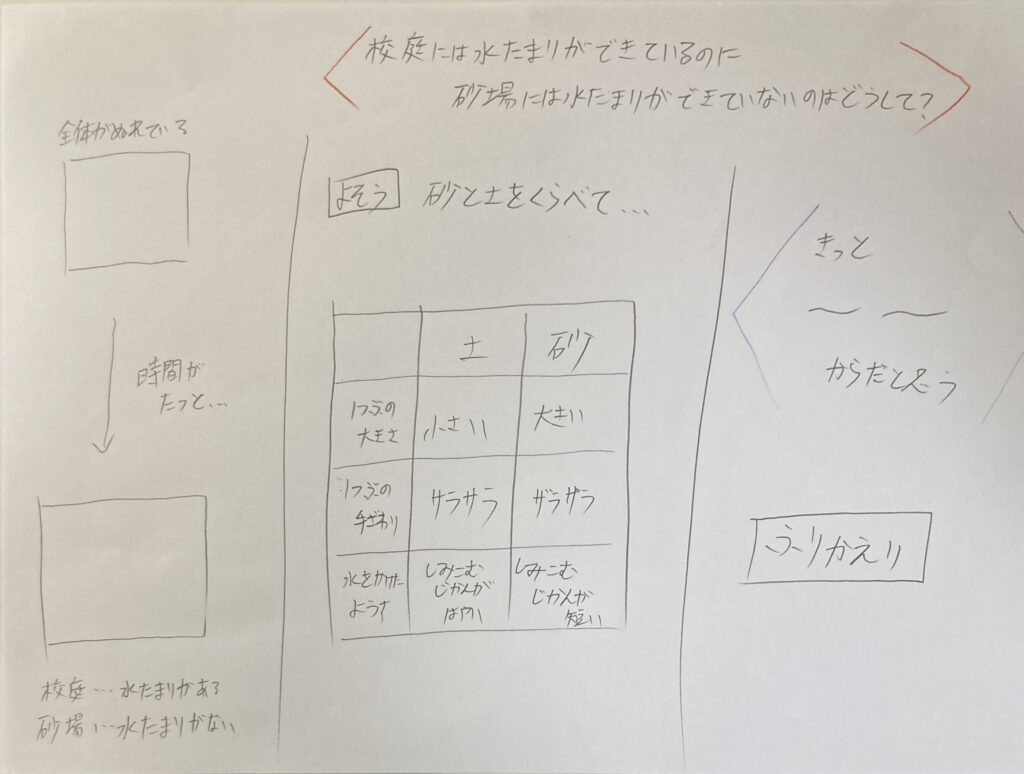 校庭には水たまりができているのに
砂場には水たまりができていないのはどうして?
全体がぬれている
時間が
たつと...
校庭…水たまりがある
砂場…水たまりがない
よそう 砂と土をくらべて...
土 砂
1つぶの
大きさ
小さい
大きい
1つぶの
手ざわり
サラサラ
ザラザラ
水をかけた
ようす
しみこむ
じかんが
しみこむ
じかんが
短い
きっと
からだと思う
ふりかえり